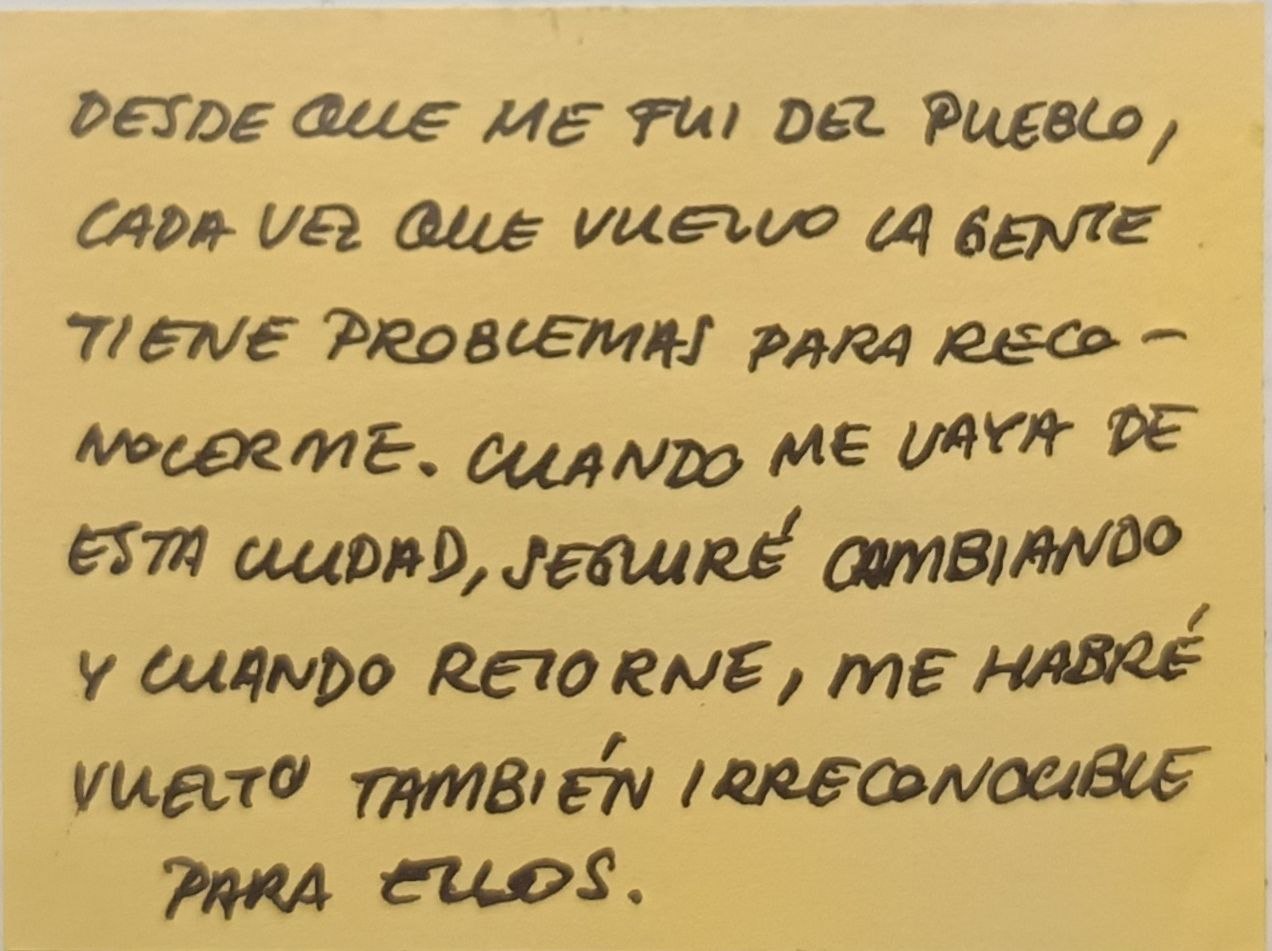 DESDE QUE ME FUI DEL PUEBLO,
CADA VEZ QUE VUELVO LA GENTE
TIENE PROBLEMAS PARA RECO-
NOCERME. CUANDO ME VAYA DE
ESTA CIUDAD, SEGUIRÉ CAMBIANDO
Y CUANDO RETORNE, ME HABRÉ
VUELTO TAMBIÉN IRRECONOCIBLE
PARA ELLOS.